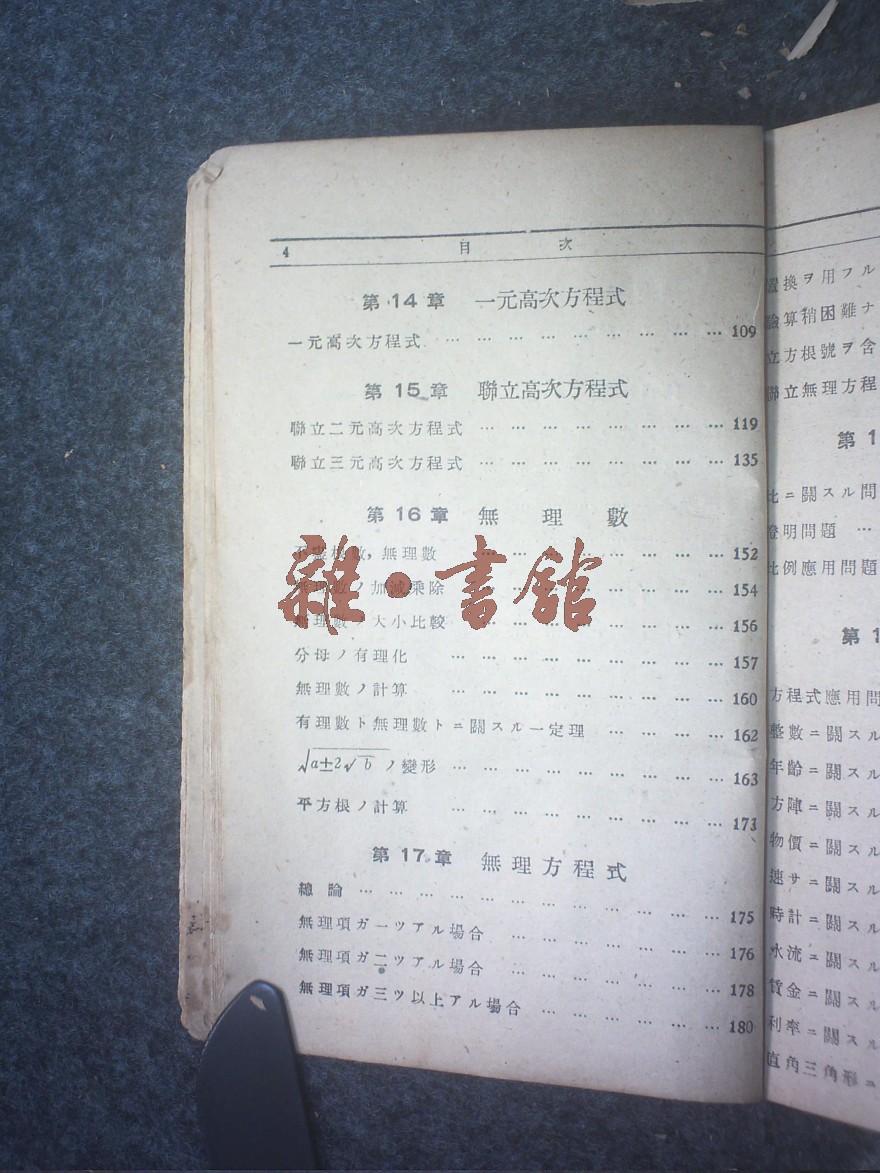 4 目 次
第 14 章 一元高次方程式
一元高次方程式 … … … … … … … … … … 109
第 15 章 聯立高次方程式
聯立二元高次方程式 … … … … … … … … 119
聯立三元高次方程式 … … … … … … … … 135
第 16 章 無 理 數
根數, 無理數 … … … … … … … … 152
無理數ノ加減乘除 … … … … … … … … 154
無理數ノ大小比較 … … … … … … … … 156
分母ノ有理化 … … … … … … … … … 157
無理數ノ計算 … … … … … … … … … 160
有理數ト無理數トニ關スル一定理 … … … … … 162
√a±2√b ノ變形 … … … … … … … … … 163
平方根ノ計算 … … … … … … … … … 173
第 17 章 無理方程式
總論 … … … … … … … … … … … … 175
無理項ガ一ツアル場合 … … … … … … … 176
無理項ガ二ツアル場合 … … … … … … … 178
無理項ガ三ツ以上アル場合 … … … … … … 180
雜·書館
置換ヲ用フル
算稍困難ナ
立方根號ヲ含
聯立無理方程
第 1
比ニ關スル問
證明問題 …
比例應用問題
第 1
方程式應用問
整數ニ關スル
年齡ニ關スル
方陣ニ關スル
物價ニ關スル
速サニ關スル
時計ニ關スル
水流ニ關スル
賃金ニ關スル
利率ニ關スル
直角三角形ニ